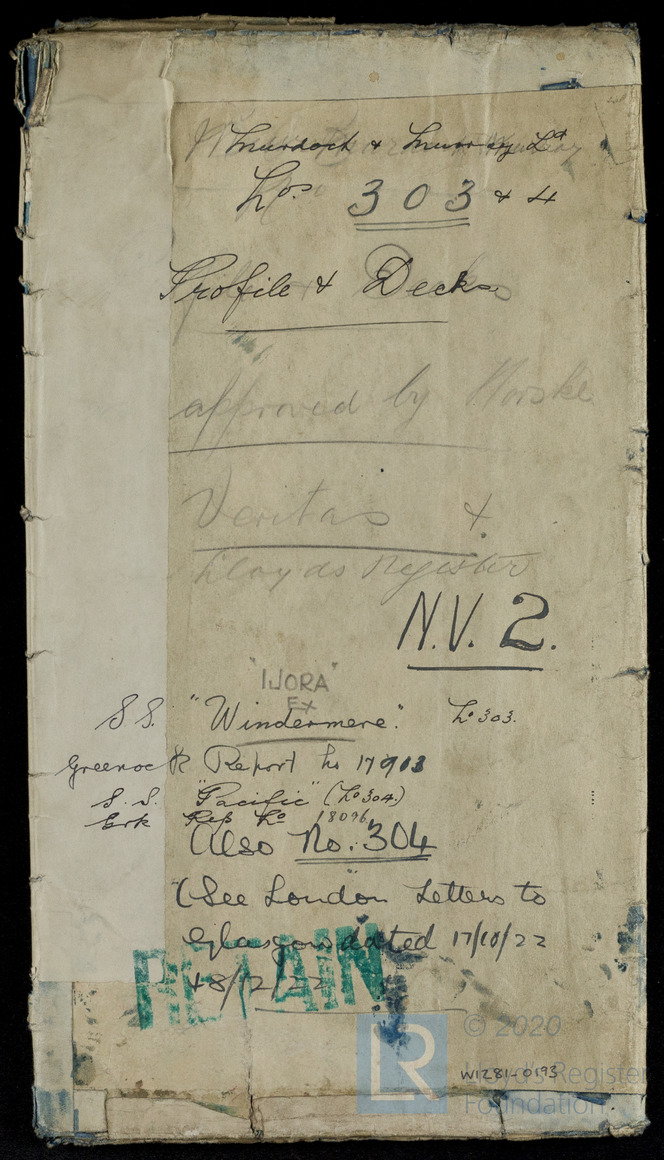 Murdoch & Murray Ltd
Nos 303 & 4
Profile & Decks
approved by Norske
Veritas &
Lloyds Register
N.V. 2.
"IJORA"
Ex
S.S. "Windermere". No 303.
Greenock Report No 17903
S.S. "Pacific" (No 304)
Grk Rep No 18096
Also No. 304
(See London Letters to
Glasgow dated 17/10/22
+8/12/22
RETAIN
© 2020
LR
W1281-0193
Lloyd's Register
Foundation